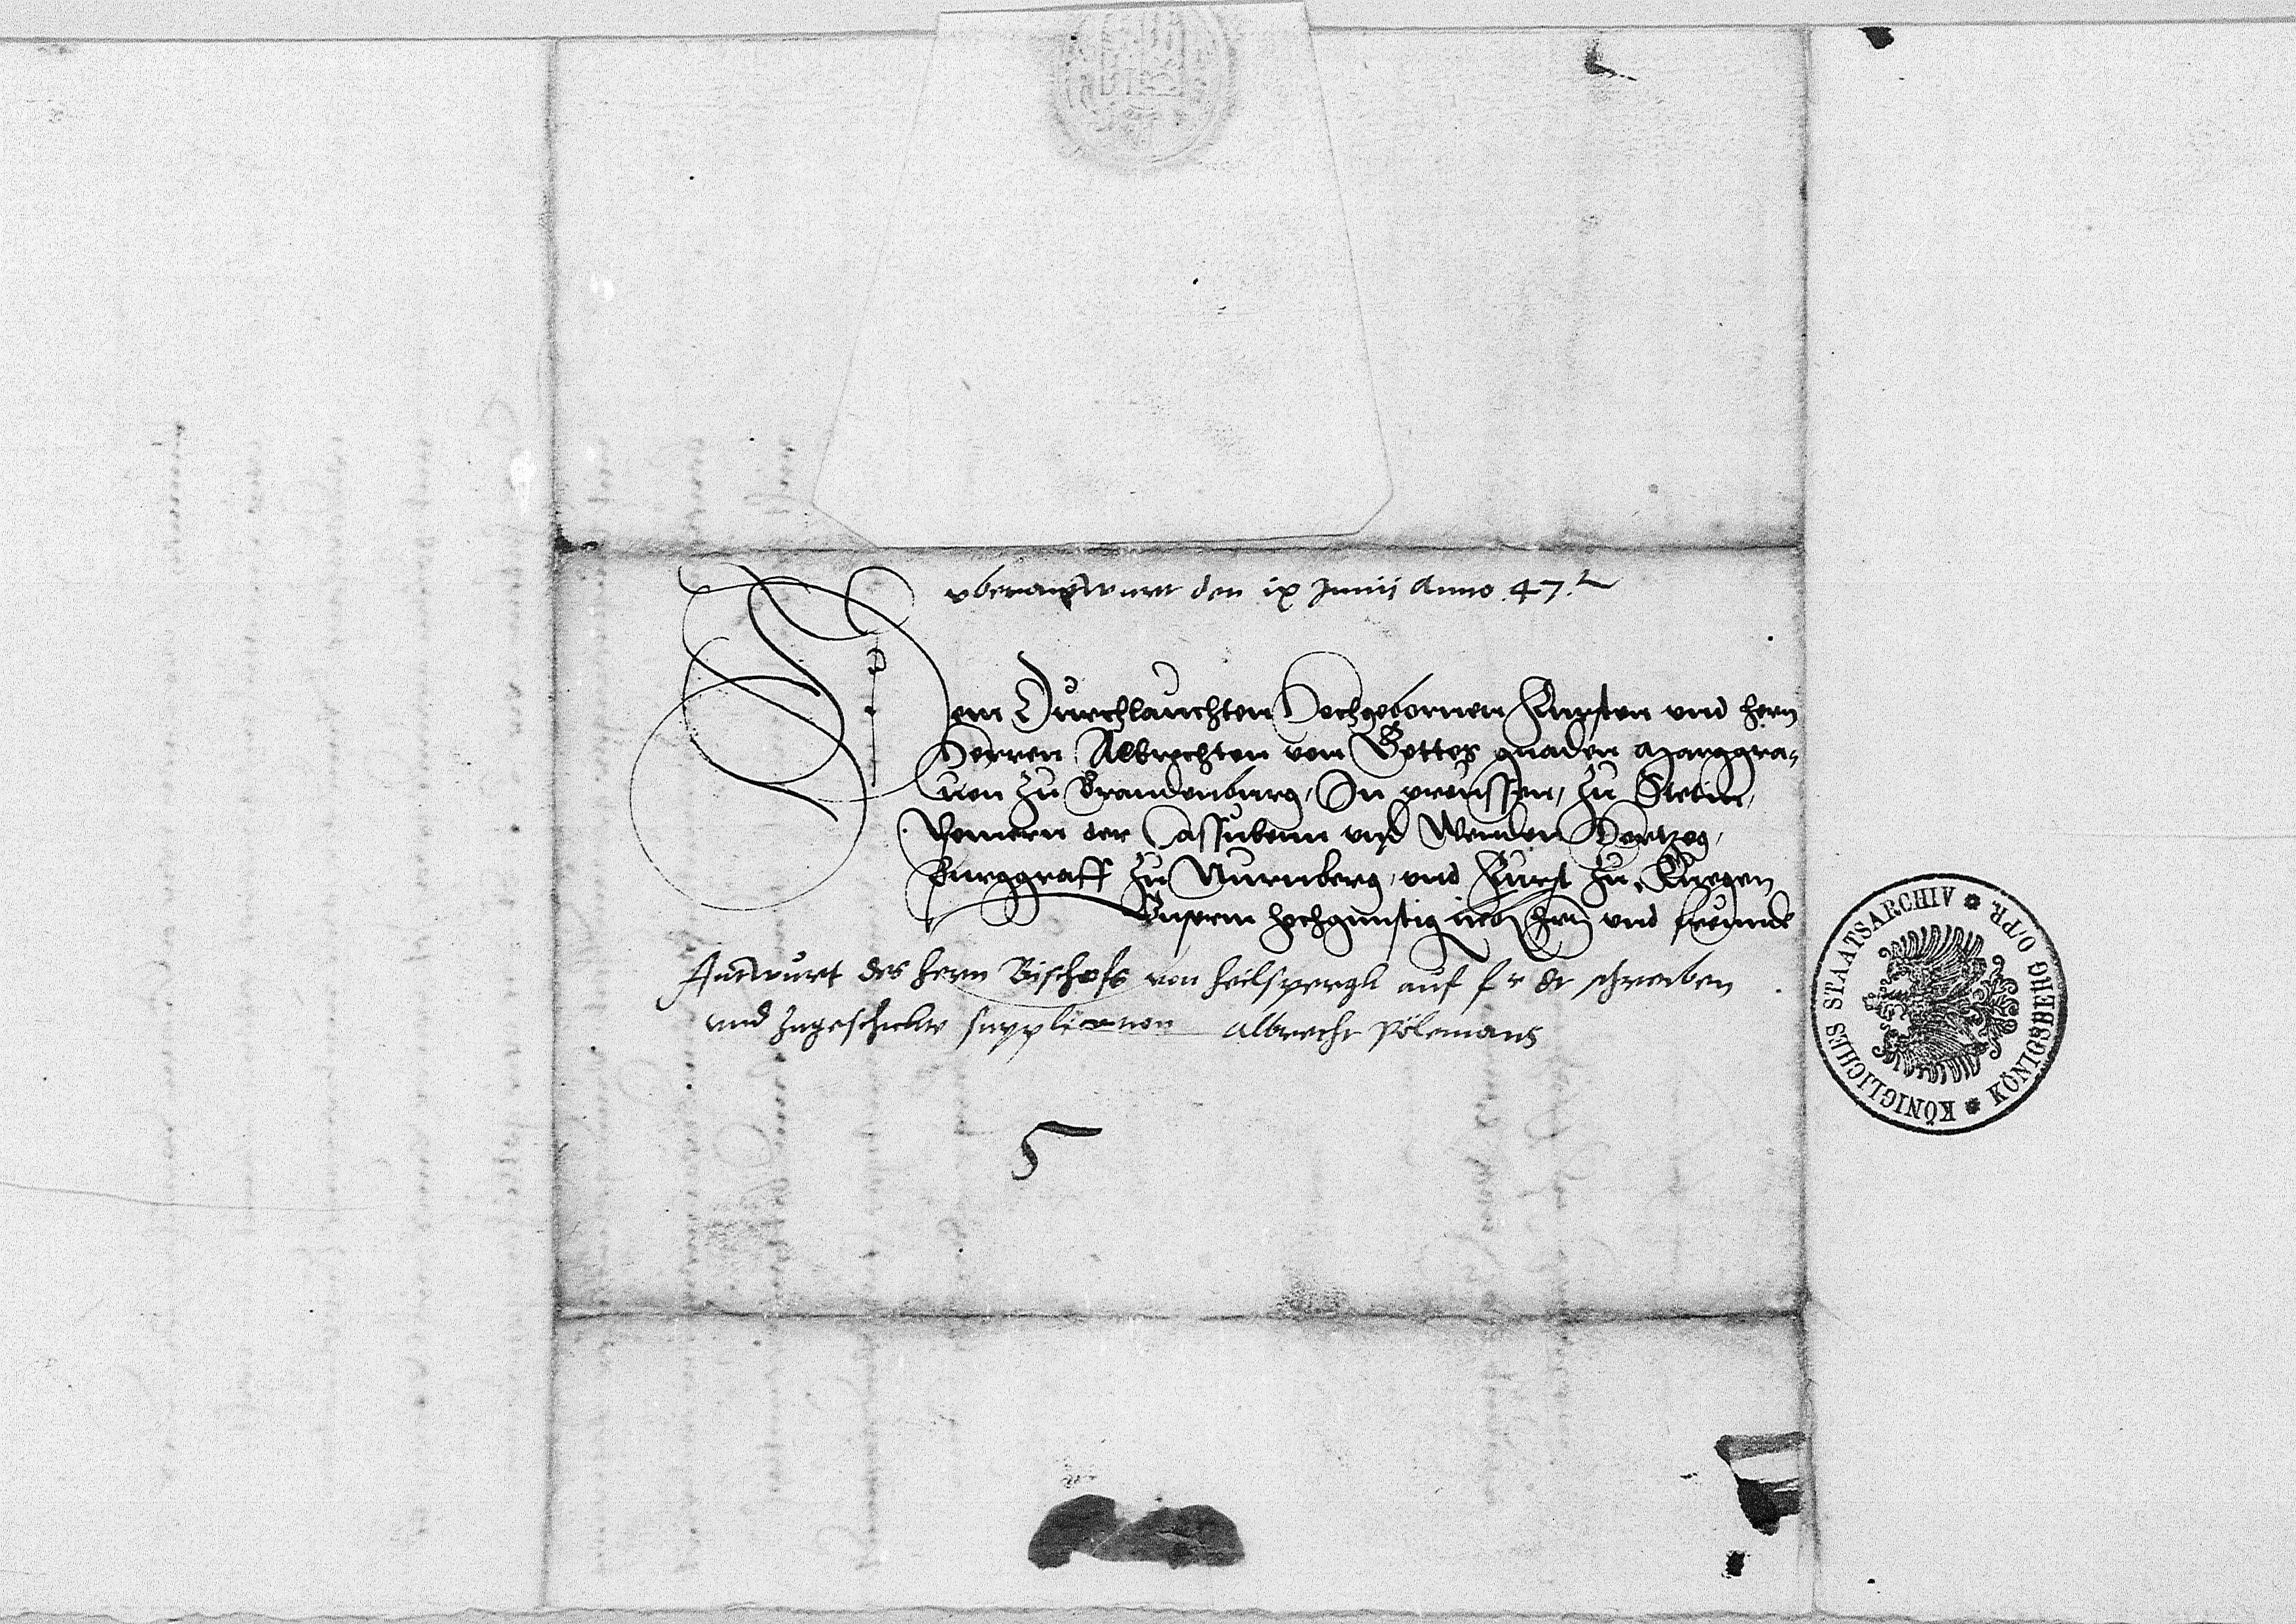 vberantwurt den ix Junii Anno .47.
Dem Durchlauchten Hochgebornen Fursten vnd hern
Herren Albrechten von Gottes gnaden Marggra-
uen zu Brandenburg, In preussen, zu Stetin,
Pomern der Cassuben vnd Wenden Hertzog,
Burggraff zu Nurnberg, vnd Furst zu Ruegen
Unserm hochgunstig hern vnd freunde
Antwurt des hern Bischofs von heilspergk auf f d schreiben
vnd zugeschickte supplication albrecht Pölemans
5
KÖNIGLICHES STAATSARCHIV * KÖNIGSBERG O/PR. *